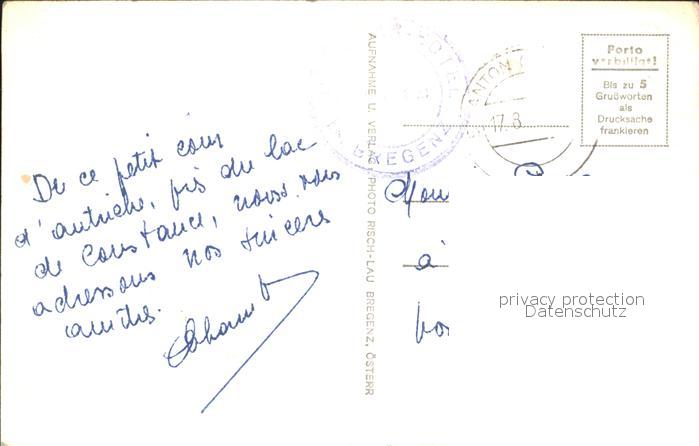 De ce petit coin
d'autriche, près du lac
de Constance, nous vous
adressons nos sincères
amitiés.
AUFNAHME U. VERLAG PHOTO RISCH-LAU BREGENZ, ÖSTERR
HOTEL
BREGENZ
ANTON
17.8
Porto
verbilligt!
Bis zu 5
Grußworten
als
Drucksache
frankieren
à
privacy protection
Datenschutz